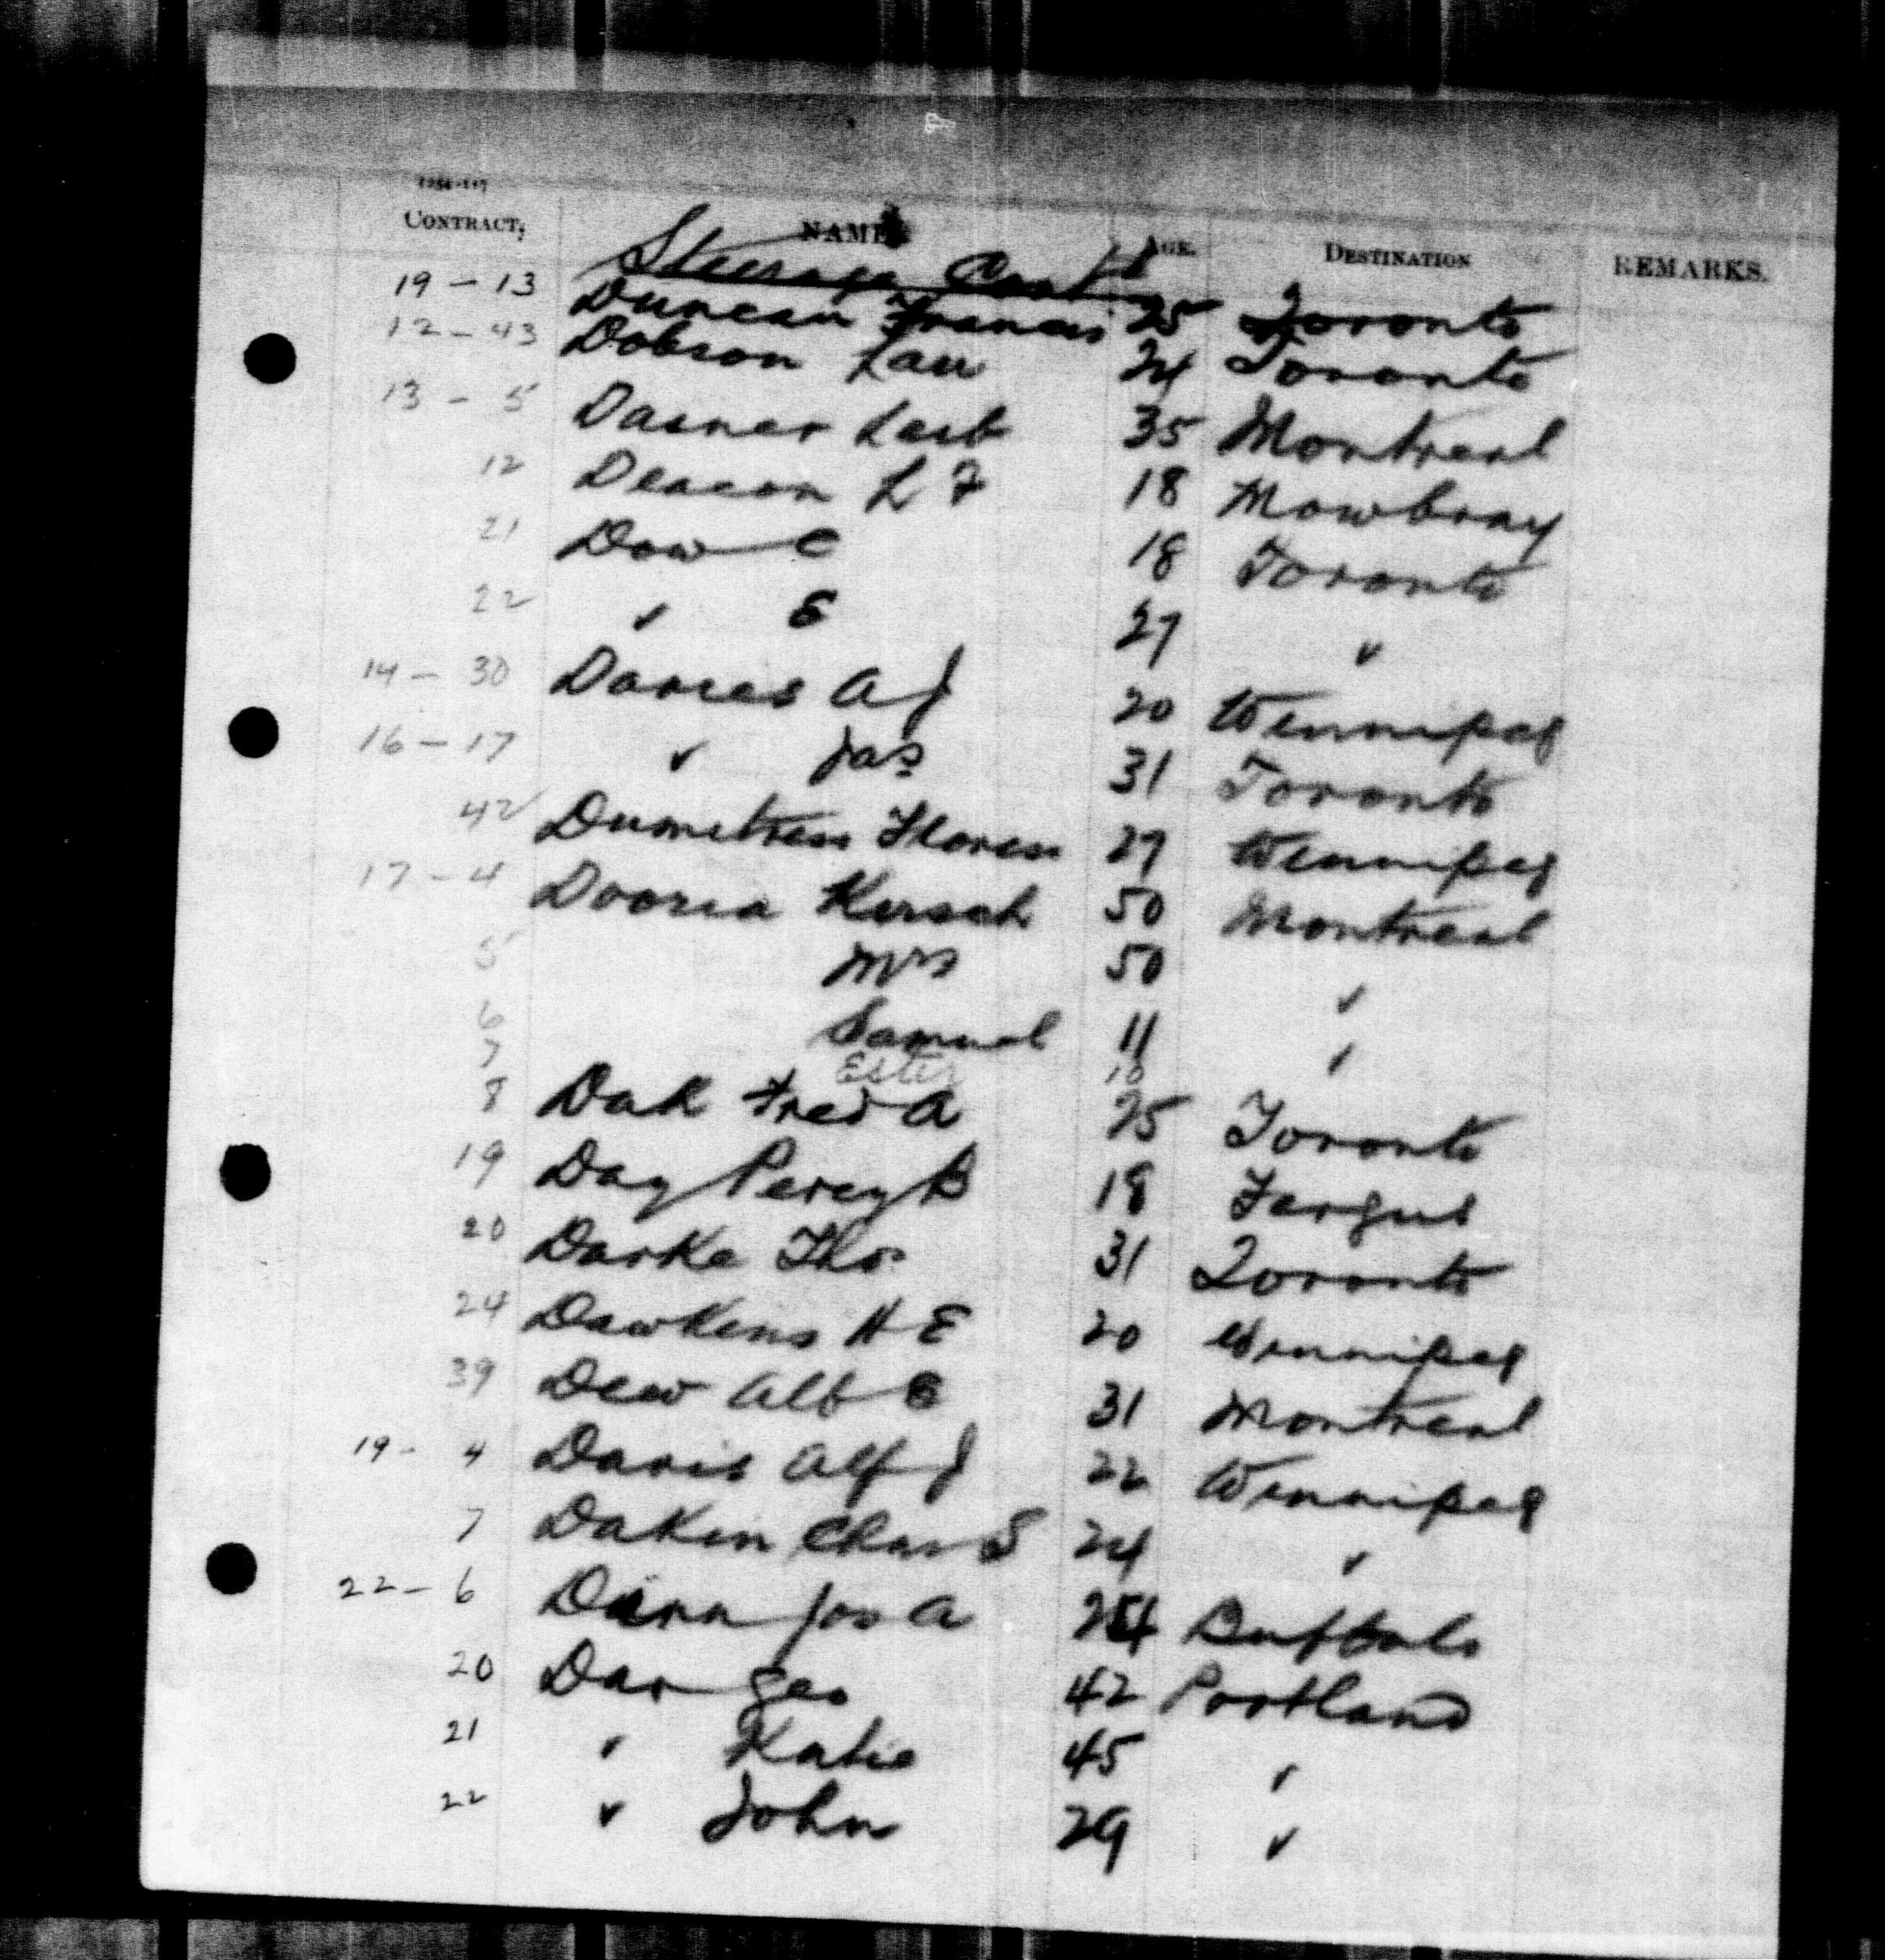 CONTRACT, NAME AGE. DESTINATION REMARKS.
Steerage Cont'd
19 - 13 Duncan Francis 25 Toronto
12 - 43 Dobson Lau 24 Toronto
13 - 5 Dasner Leib 35 Montreal
12 Deacon L F 18 Mowbray
21 Dow C 18 Toronto
22 " E 27 "
14 - 30 Davies A J 20 Winnipeg
16 - 17 " Jas 31 Toronto
42 27 Winnipeg
17 - 4 Dooria Kirsch 50 Montreal
5 Mrs 50 "
6 Samuel 11 "
7 Ester 10
8 Dak Fred A 25 Toronto
19 Day Percy B 18 Fergus
20 Darke Thos 31 Toronto
24 Dawkins H E 20 Winnipeg
39 Dew Alb E 31 Montreal
19 - 4 Davis Alf J 22 Winnipeg
7 Dakin Chas S 24 "
22 - 6 Jos A Buffalo
20 Dar Geo 42 Portland
21 " Katie 45 "
22 " John 29 "